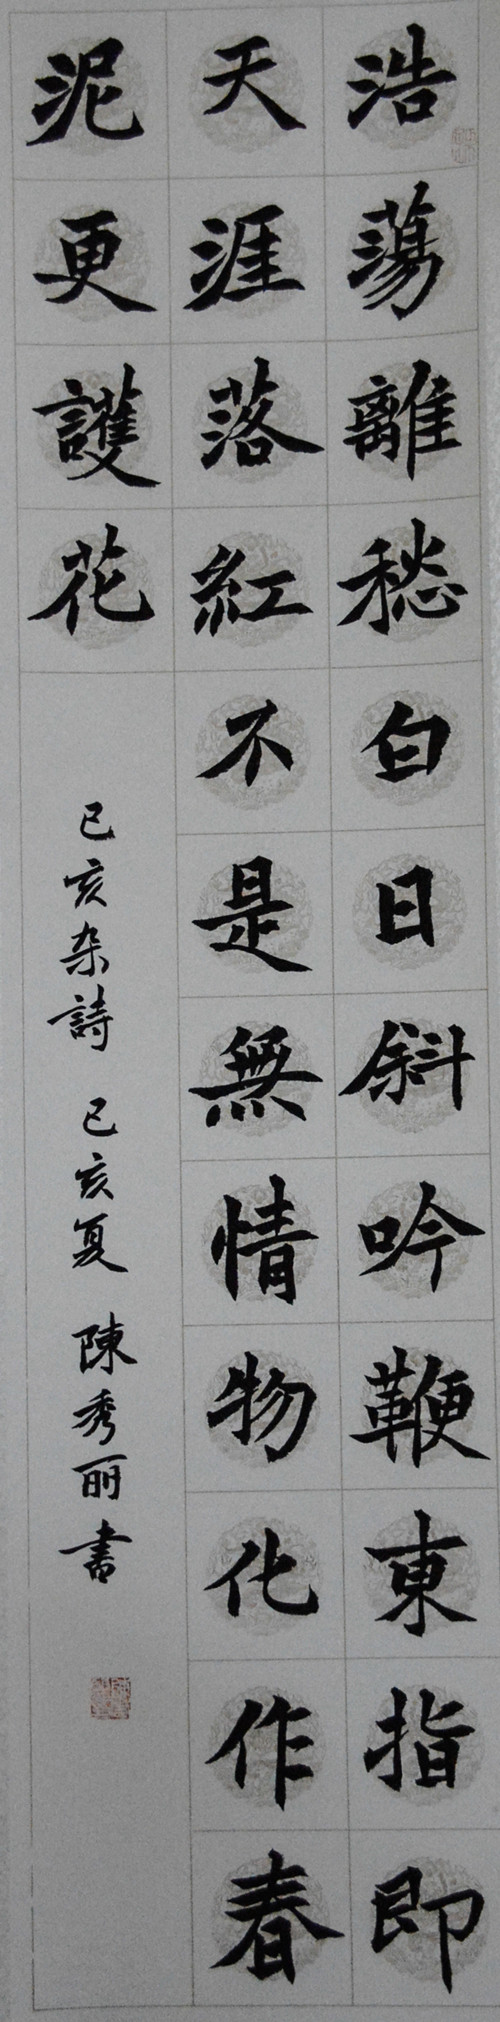 浩蕩離愁白日斜吟鞭東指即
天涯落紅不是無情物化作春
泥更護花
己亥杂詩 己亥夏 陳秀丽書